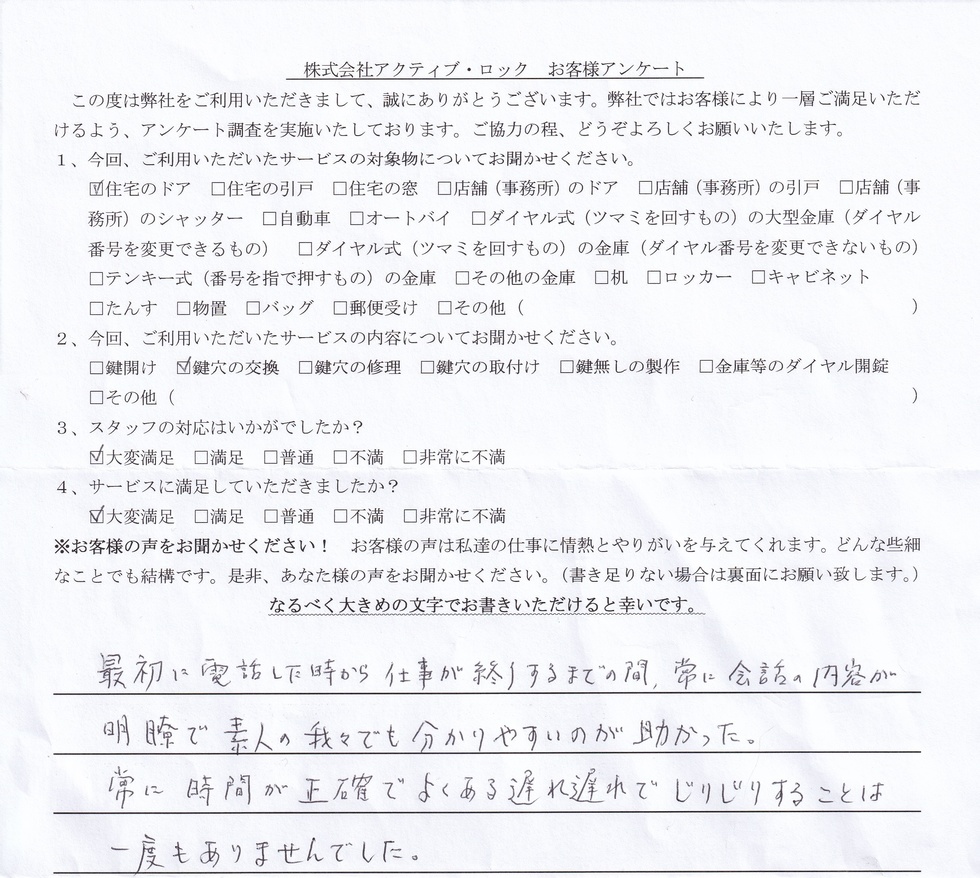 株式会社アクティブ・ロック　お客様アンケート
この度は弊社をご利用いただきまして、誠にありがとうございます。弊社ではお客様により一層ご満足いただ
けるよう、アンケート調査を実施いたしております。ご協力の程、どうぞよろしくお願いいたします。
1、今回、ご利用いただいたサービスの対象物についてお聞かせください。
☑住宅のドア　□住宅の引戸　□住宅の窓　□店舗（事務所）のドア　□店舗（事務所）の引戸　□店舗（事
務所）のシャッター　□自動車　□オートバイ　□ダイヤル式（ツマミを回すもの）の大型金庫（ダイヤル
番号を変更できるもの）　□ダイヤル式（ツマミを回すもの）の金庫（ダイヤル番号を変更できないもの）
□テンキー式（番号を指で押すもの）の金庫　□その他の金庫　□机　□ロッカー　□キャビネット
□たんす　□物置　□バッグ　□郵便受け　□その他（　　　）
2、今回、ご利用いただいたサービスの内容についてお聞かせください。
□鍵開け　☑鍵穴の交換　□鍵穴の修理　□鍵穴の取付け　□鍵無しの製作　□金庫等のダイヤル開錠
□その他（　　　）
3、スタッフの対応はいかがでしたか？
☑大変満足　□満足　□普通　□不満　□非常に不満
4、サービスに満足していただきましたか？
☑大変満足　□満足　□普通　□不満　□非常に不満
※お客様の声をお聞かせください！　お客様の声は私達の仕事に情熱とやりがいを与えてくれます。どんな些細
なことでも結構です。是非、あなた様の声をお聞かせください。（書き足りない場合は裏面にお願い致します。）
なるべく大きめの文字でお書きいただけると幸いです。
最初に電話した時から仕事が終了するまでの間、常に会話の内容が
明瞭で素人の我々でも分かりやすいのが助かった。
常に時間が正確でよくある遅れ遅れでじりじりすることは
一度もありませんでした。